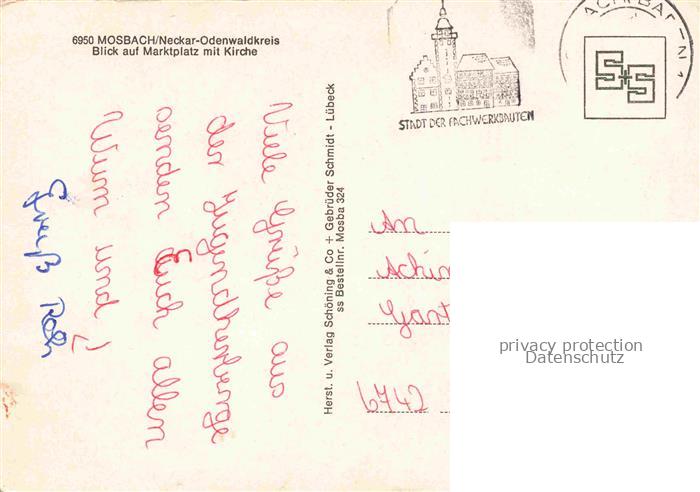 6950 MOSBACH/Neckar-Odenwaldkreis
Blick auf Marktplatz mit Kirche
STADT DER FACHWERKBAUTEN
S+S
Viele Grüße aus
der Jugendherberge
senden Euch allen
und
Gruß
Herst. u. Verlag Schöning & Co + Gebrüder Schmidt - Lübeck
ss Bestellnr. Mosba 324
An
Achim
Gast
6742
privacy protection
Datenschutz